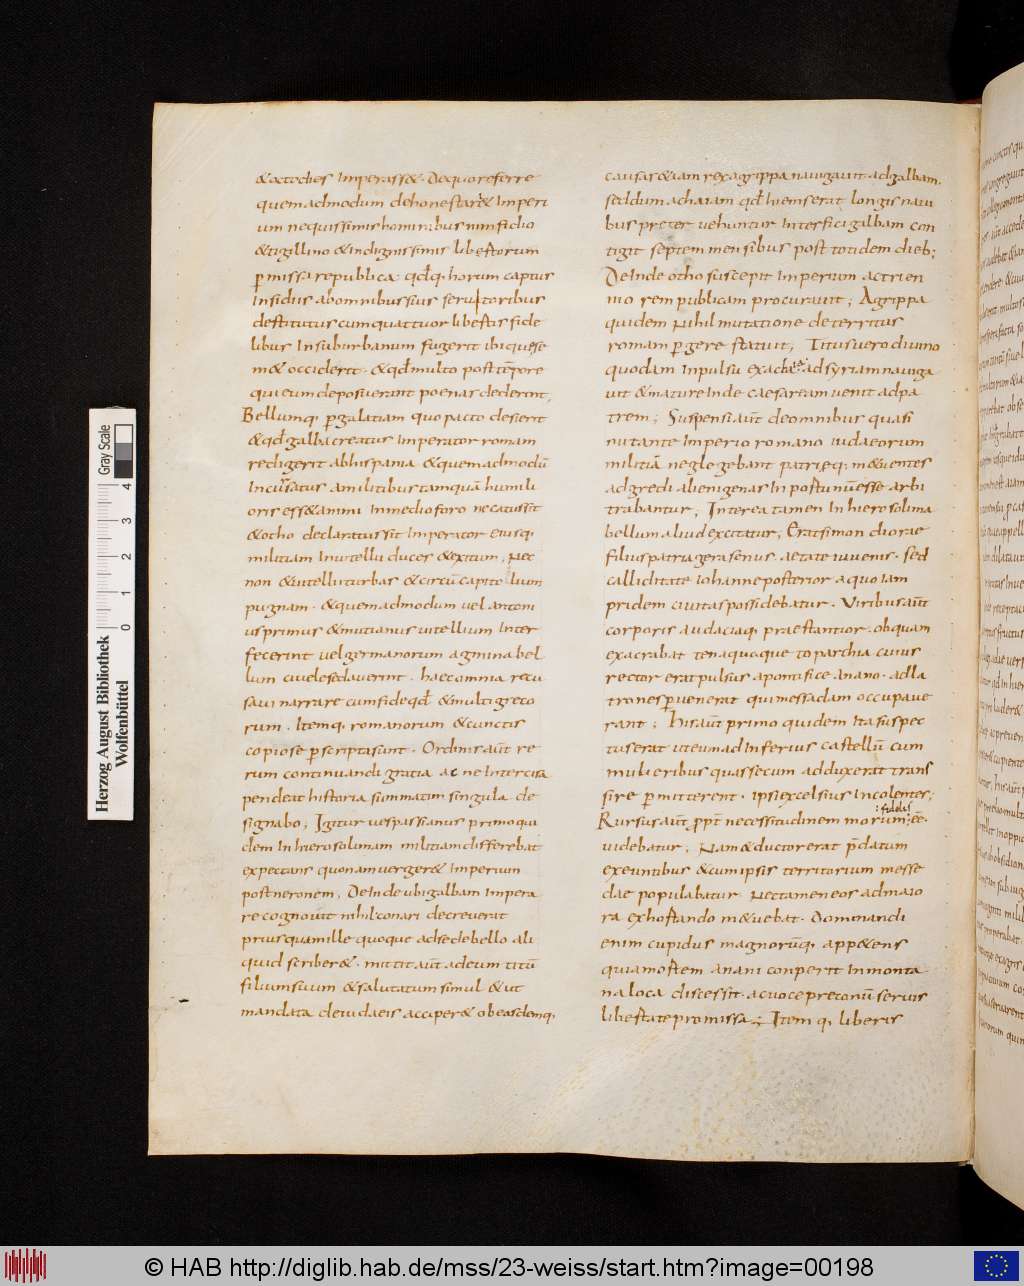 & octo dies Imperass& . De quo referre
quem admodum dehonestar& Imperi
um nequissimis hominibus nimfidio
& tigillino & indignissimis libertorum
p missa republica . qđq; horum captus
Insidiis abomnibus suis seruitoribus
destitutus cum quattuor libertis fide
libus In suburbanum fugerit ibi que se
m& occiderit . & qđ multo post tēpore
qui eum deposuerant poenas dederint,
Bellumq; p galatiam quo pacto desierit
& qđ galba creatus Imperator romam
redigerit ab hispania & quem admodū
Incusatus a militibus tamquā humili
oris ess& animi In medio foro necatus sit
& otho declaratus sit Imperator eiusq;
militiam In uitellii duces & exitum, Nec
non & uitellii turbas & circū capitolium
pugnam . & quem admodum uel antoni
us primus & mutianus uitellium Inter
fecerint uel germanorum agmina bel
lum ciuele sedauerint . haec omnia recu
saui narrare cum fide qđ & multi greco
rum . Itemq; romanorum & cunctis
copiose p scripta sunt . Ordinis aūt re
rum continuandi gratia ac ne Intercisa
pendeat historia summatim singula de
signabo; Igitur uespassianus primo qui
dem In hierosolimam militiam differebat
expectans quonam uerger& Imperium
post neronem, Deinde ubi galbam Impera
re cognouit nihil conari decreuerat
prius quam ille quoque ad se de bello ali
quid scriber& . mittit aūt ad eum titū
filium suum & salutatum simul & ut
mandata de iudaeis acciper& ob easdemq;
causas & iam rex agrippa nauigauit ad galbam.
sed dum ad chaiam qđ hiems erat longis naui
bus preter uehuntur Interfici galbam con
tigit septem mensibus post totidem dieb;
Deinde otho suscepit Imperium ac trien
nio rem publicam procurauit; Agrippa
quidem Nihil mutatione deterritus
romam p gere statuit; Titus uero diuino
quodam Inpulsu ex acha ad syriam nauiga
uit & mature Inde caesaream uenit ad pa
trem; Suspensi aūt de omnibus quasi
nutante Imperio romano iudaeorum
militiā neglegebant patrieq; m&uentes
adgredi alienigenas In postunū esse arbi
trabantur; Interea tamen In hierosolima
bellum aliud excitatur; Erat simon diorae
filius patria gerasenus aetate iuuenis . sed
calliditate Iohanne posterior a quo Iam
pridem ciuitas possidebatur . Viribus aūt
corporis audaciaq; praestantior . ob quam
ex acrabatenaquaque toparchia cuius
rector erat pulsus a pontifice anano . ad la
trones p uenerat qui messadam occupaue
rant; His aūt primo quidem Ita suspec
tus erat ut eum ad Inferius castellū cum
mulieribus quas secum adduxerat trans
sire p mitterent . ipsi excelsius Incolentes;
: fidelis
Rursus aūt ppt necessitudinem morum; eē
uidebatur; Nam & ductor erat pdatum
exeuntibus & cum ipsis territorium messe
dae populabatur Nec tamen eos ad maio
ra ex hostando m&uebat . Dominandi
enim cupidus magnorūq; app&ens
qui a mortem anani conperit In monta
na loca discessit . ac uoce preconū seruis
libertate promissa; Item q; liberis
Herzog August Bibliothek
Wolfenbüttel
0 1 2 3 4
Gray Scale
© HAB http://diglib.hab.de/mss/23-weiss/start.htm?image=00198